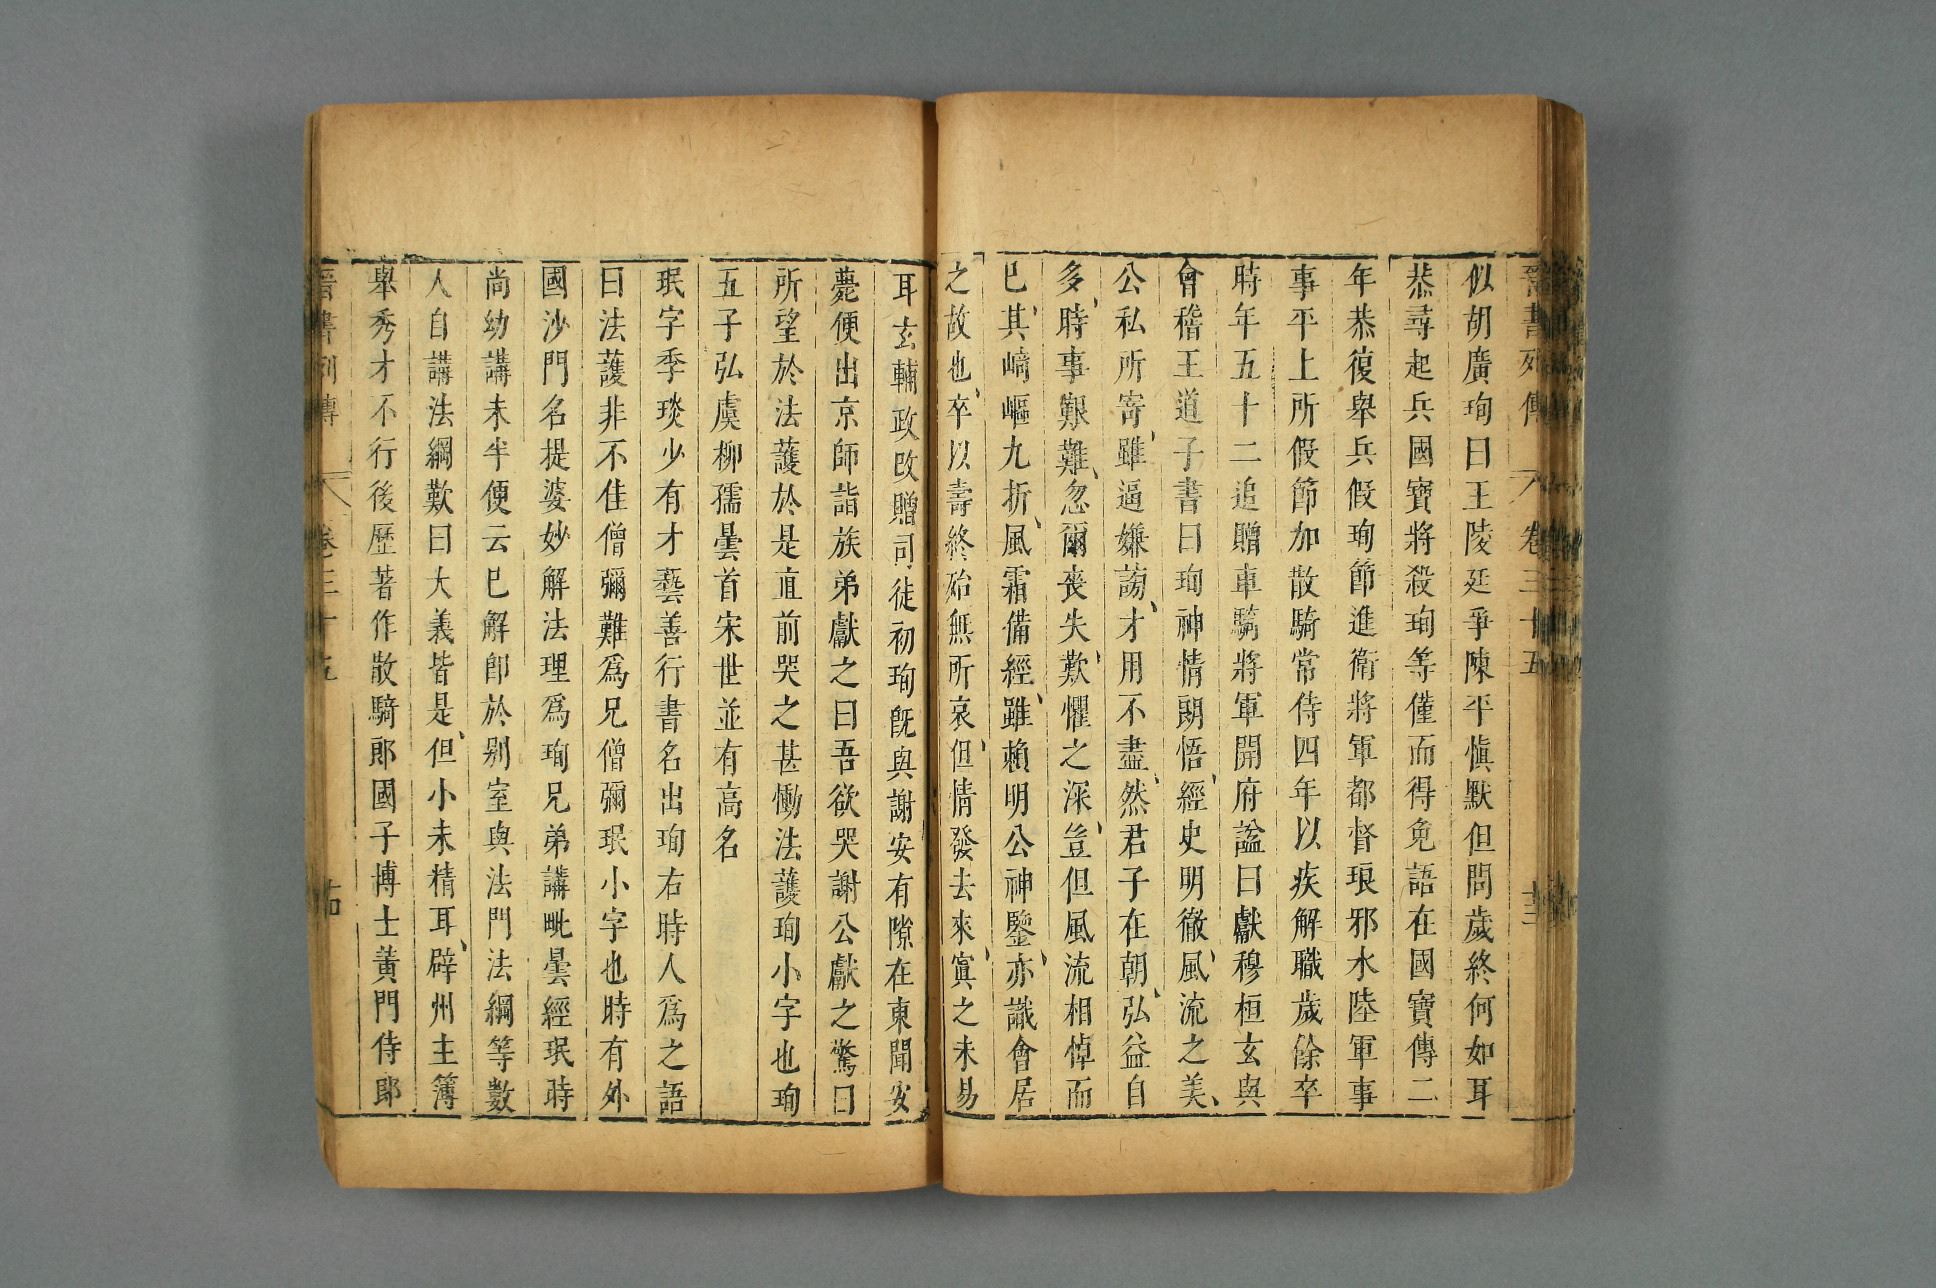 晉書列傳 卷三十五 十三
似胡廣珣曰王陵廷爭陳平愼默但問歲終何如耳
恭尋起兵國寶將殺珣等僅而得免語在國寶傳二
年恭復舉兵假珣節進衛將軍都督琅邪水陸軍事
事平上所假節加散騎常侍四年以疾解職歲餘卒
時年五十二追贈車騎將軍開府諡曰獻穆桓玄與
會稽王道子書曰珣神情朗悟經史明徹風流之美
公私所寄雖逼嫌謗才用不盡然君子在朝弘益自
多時事艱難忽爾喪失歎懼之深豈但風流相悼而
已其崎嶇九折風霜備經雖賴明公神鑒亦識會居
之故也卒以壽終殆無所哀但情發去來寘之未易
耳玄輔政改贈司徒初珣旣與謝安有隙在東聞安
薨便出京師詣族弟獻之曰吾欲哭謝公獻之驚曰
所望於法護於是直前哭之甚慟法護珣小字也珣
五子弘虞柳孺曇首宋世並有高名
珉字季琰少有才藝善行書名出珣右時人爲之語
曰法護非不佳僧彌難爲兄僧彌珉小字也時有外
國沙門名提婆妙解法理爲珣兄弟講毗曇經珉時
尚幼講未半便云已解卽於別室與法門法綱等數
人自講法綱歎曰大義皆是但小未精耳辟州主簿
舉秀才不行後歷著作散騎郎國子博士黃門侍郎
晉書列傳 卷三十五